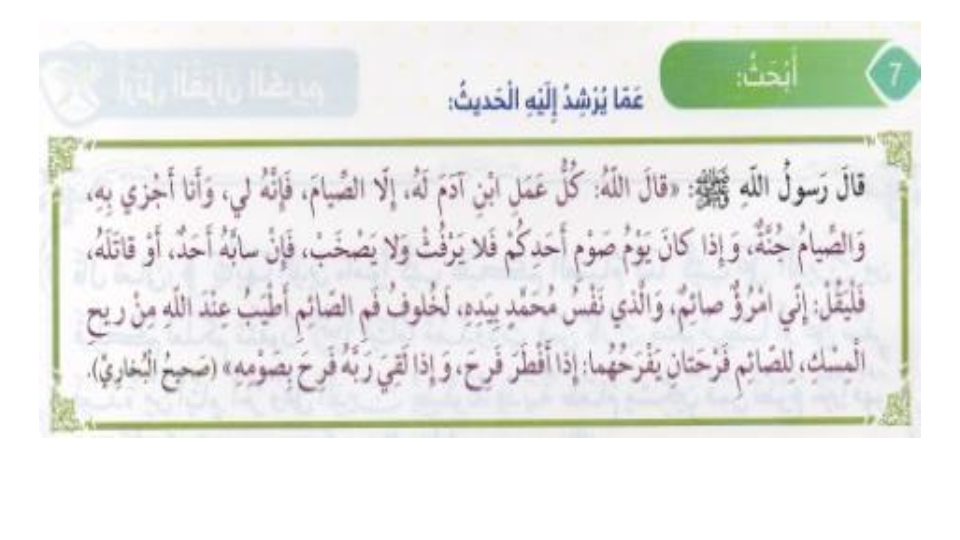 7
أَبْحَثُ:
عَمّا يُرْشِدُ إِلَيْهِ الْحَديثُ:
قالَ رَسولُ اللّهِ ﷺ: «قالَ اللّهُ: كُلُّ عَمَلِ ابْنِ آدَمَ لَهُ، إِلّا الصِّيامَ، فَإِنَّهُ لي، وَأَنا أَجْزي بِهِ،
وَالصِّيامُ جُنَّةٌ، وَإِذا كانَ يَوْمُ صَوْمِ أَحَدِكُمْ فَلا يَرْفُثْ وَلا يَصْخَبْ، فَإِنْ سابَّهُ أَحَدٌ، أَوْ قاتَلَهُ،
فَلْيَقُلْ: إِنّي امْرُؤٌ صائِمٌ، وَالَّذي نَفْسُ مُحَمَّدٍ بِيَدِهِ، لَخُلوفُ فَمِ الصّائِمِ أَطْيَبُ عِنْدَ اللّهِ مِنْ ريحِ
الْمِسْكِ، لِلصّائِمِ فَرْحَتانِ يَفْرَحُهُما: إِذا أَفْطَرَ فَرِحَ، وَإِذا لَقِيَ رَبَّهُ فَرِحَ بِصَوْمِهِ» (صَحيحُ الْبُخارِيِّ).